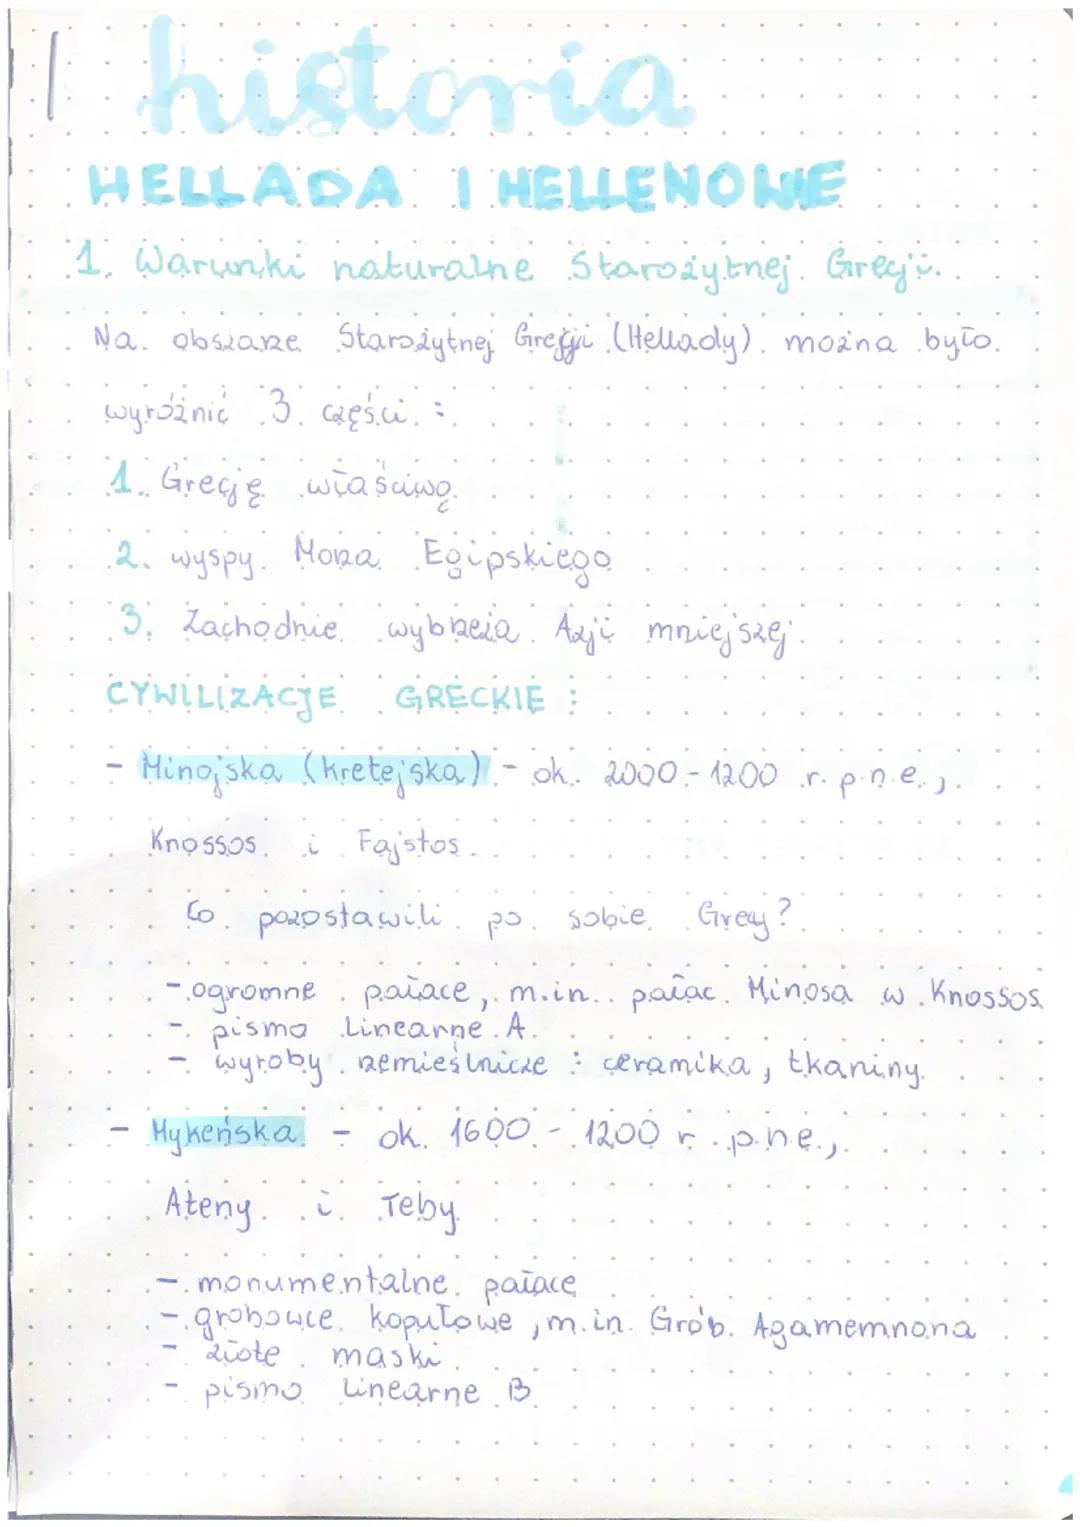 historia
HELLADA I HELLENOWIE
1. Warunki naturalne Starożytnej Grecji.
Na obszarze Starożytnej Grecji (Hellady) można było
wyróżnić 3 części :
1. Grecję właściwą
2. wyspy Morza Egipskiego
3. Zachodnie wybrzeża Azji mniejszej
CYWILIZACJE GRECKIE :
- Minojska (kretejska) - ok. 2000 - 1200 r. p.n.e.,
Knossos i Fajstos.
Co pozostawili po sobie Grecy?
- ogromne pałace, m.in. pałac Minosa w Knossos
- pismo linearne A
- wyroby rzemieślnicze : ceramika, tkaniny
- Mykeńska - ok. 1600 - 1200 r. p.n.e.,
Ateny i Teby
- monumentalne pałace
- grobowce kopułowe, m.in. Grób Agamemnona
- złote maski
- pismo linearne B